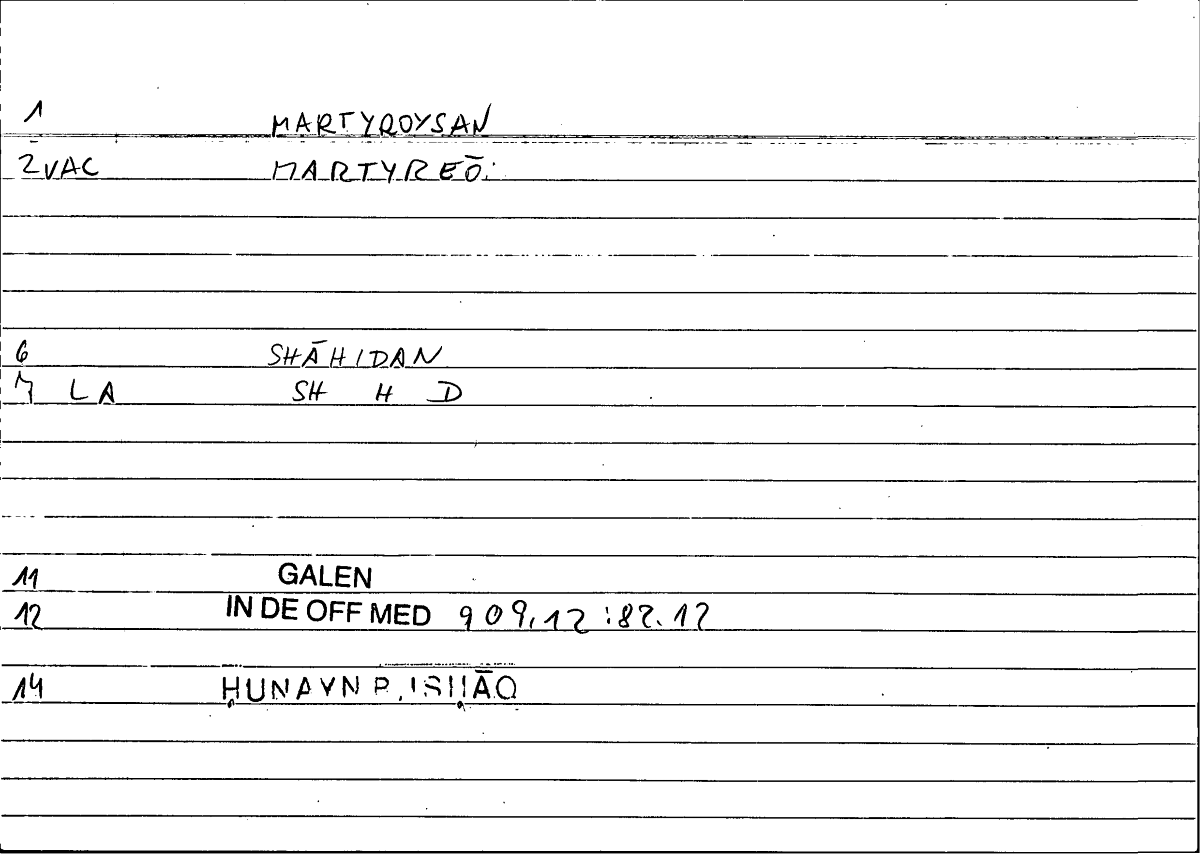 1 MARTYROYSAN
2 VAC MARTYREŌ:
6 SHĀHIDAN
7 LA SH H D
11 GALEN
12 IN DE OFF MED 909.12:82.12
14 ḤUNAYN B. ISḤĀQ